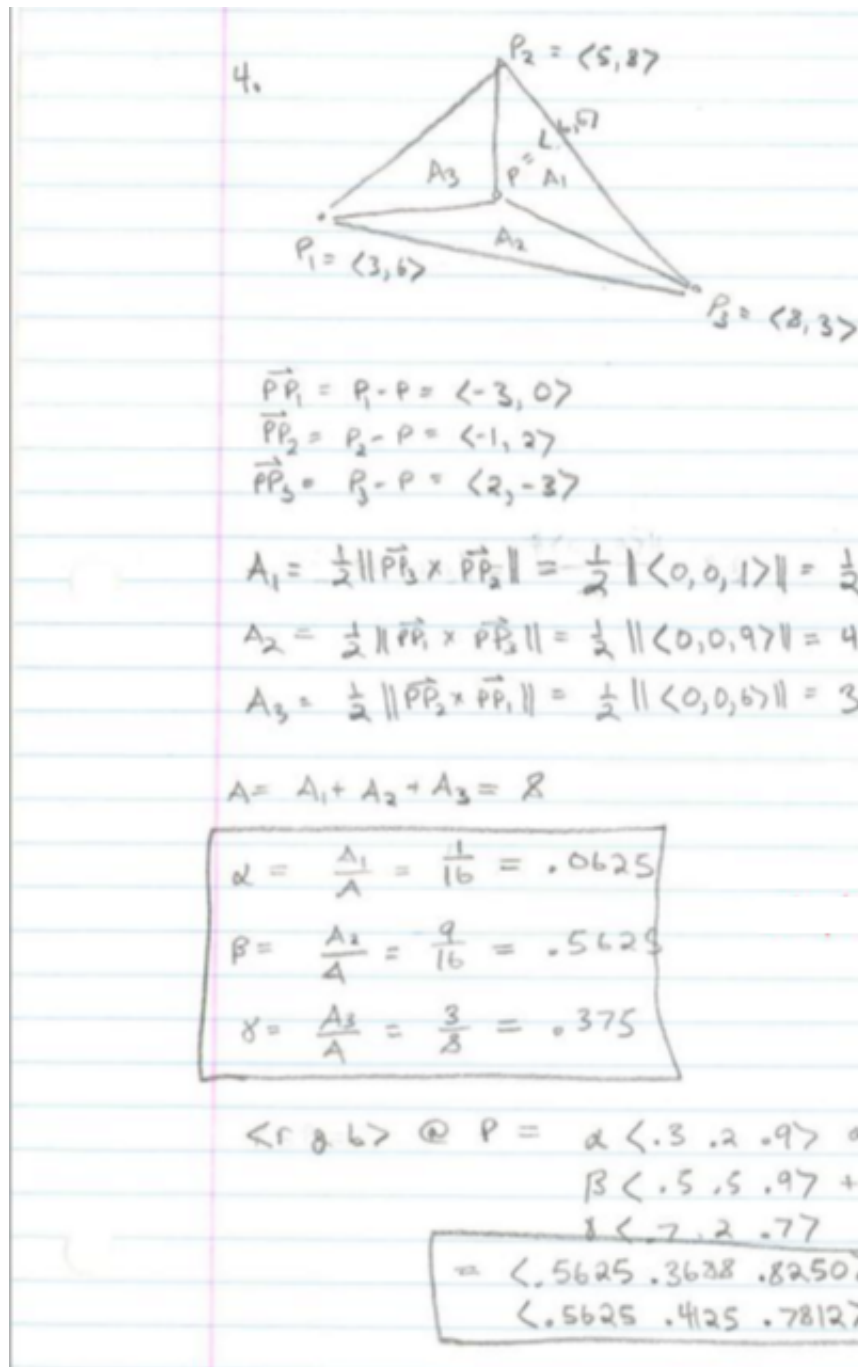 4.
P₂ = <5,8>
A₃
P =
A₁
A₂
P₁ = <3,6>
P₃ = <8,3>
PP₁ = P₁ - P = <-3, 0>
PP₂ = P₂ - P = <-1, 2>
PP₃ = P₃ - P = <2, -3>
A₁ = ½ ||PP₃ x PP₂|| = ½ ||<0,0,1>|| = ½
A₂ = ½ ||PP₁ x PP₃|| = ½ ||<0,0,9>|| = 4
A₃ = ½ ||PP₂ x PP₁|| = ½ ||<0,0,6>|| = 3
A = A₁ + A₂ + A₃ = 8
α = A₁/A = 1/16 = .0625
β = A₂/A = 9/16 = .5625
γ = A₃/A = 3/8 = .375
<r g b> @ P = α <.3 .2 .9>
β <.5 .5 .9> +
γ <.7 .2 .7>
= <.5625 .3688 .8250>
<.5625 .4125 .7812>